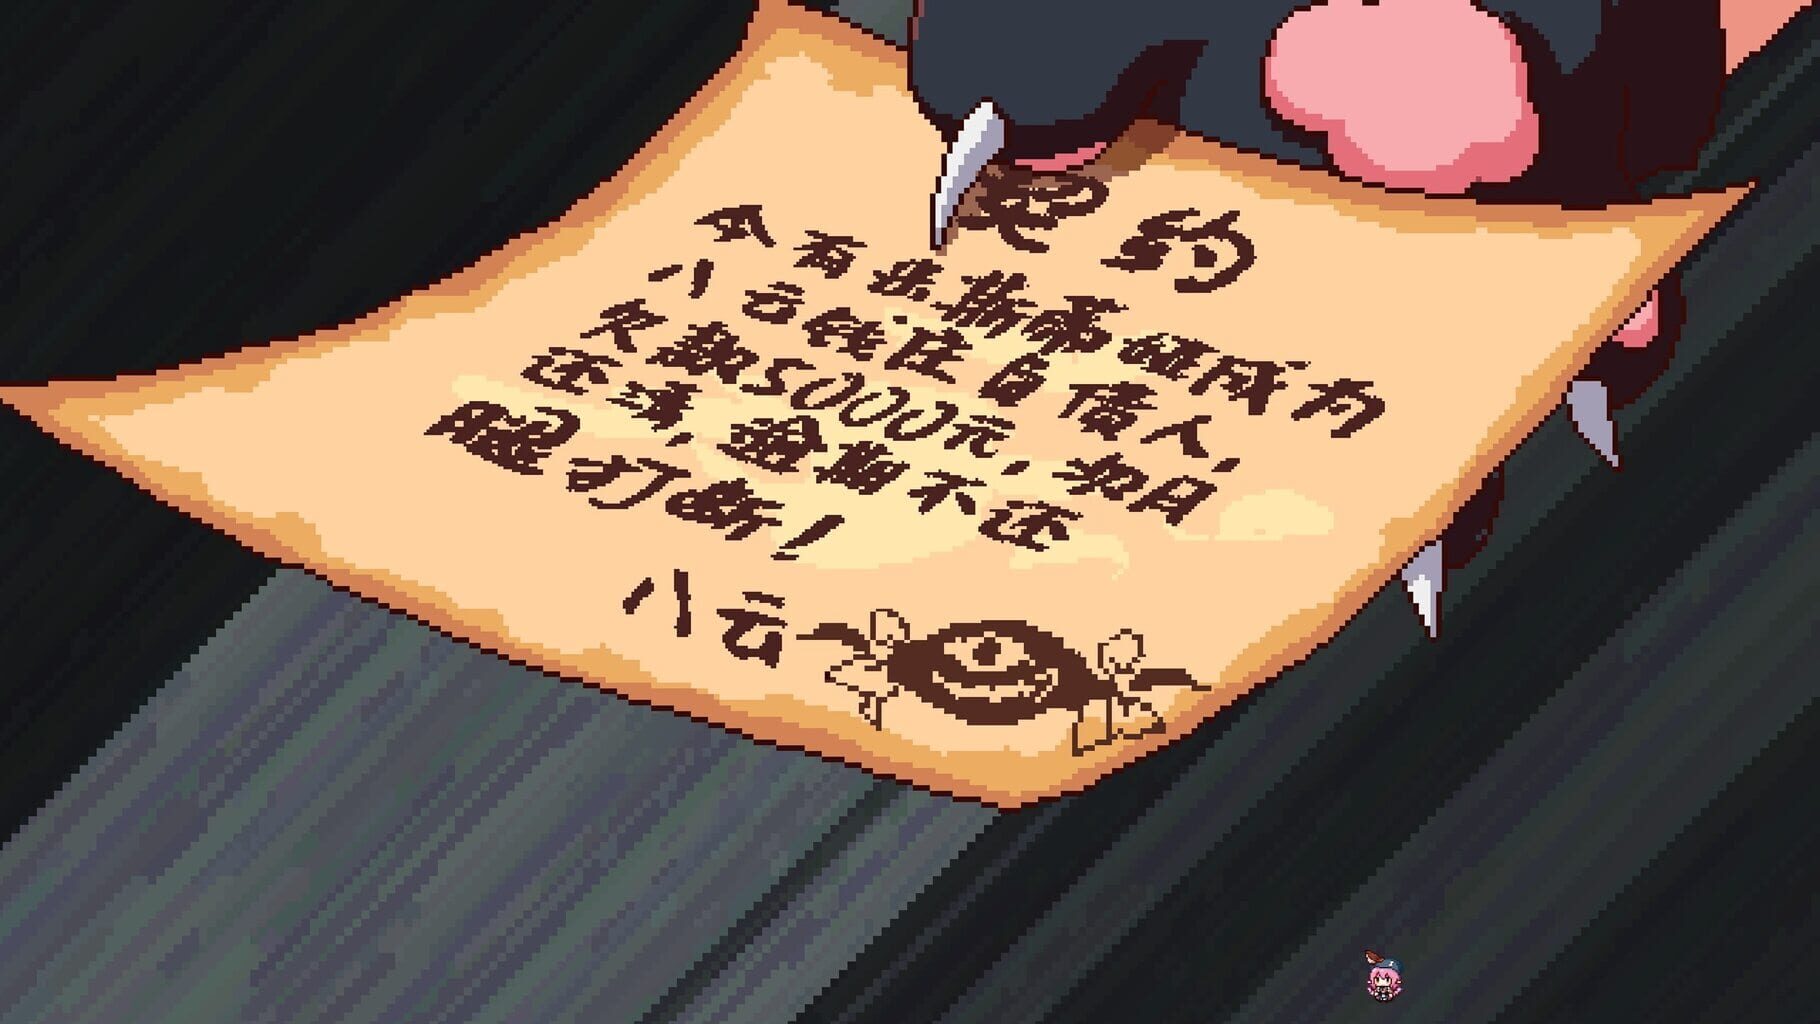 契约
今有米斯蒂娅成为
八云钱庄自借人,
欠款5000元,如月
还清,逾期不还
腿打断!
八云